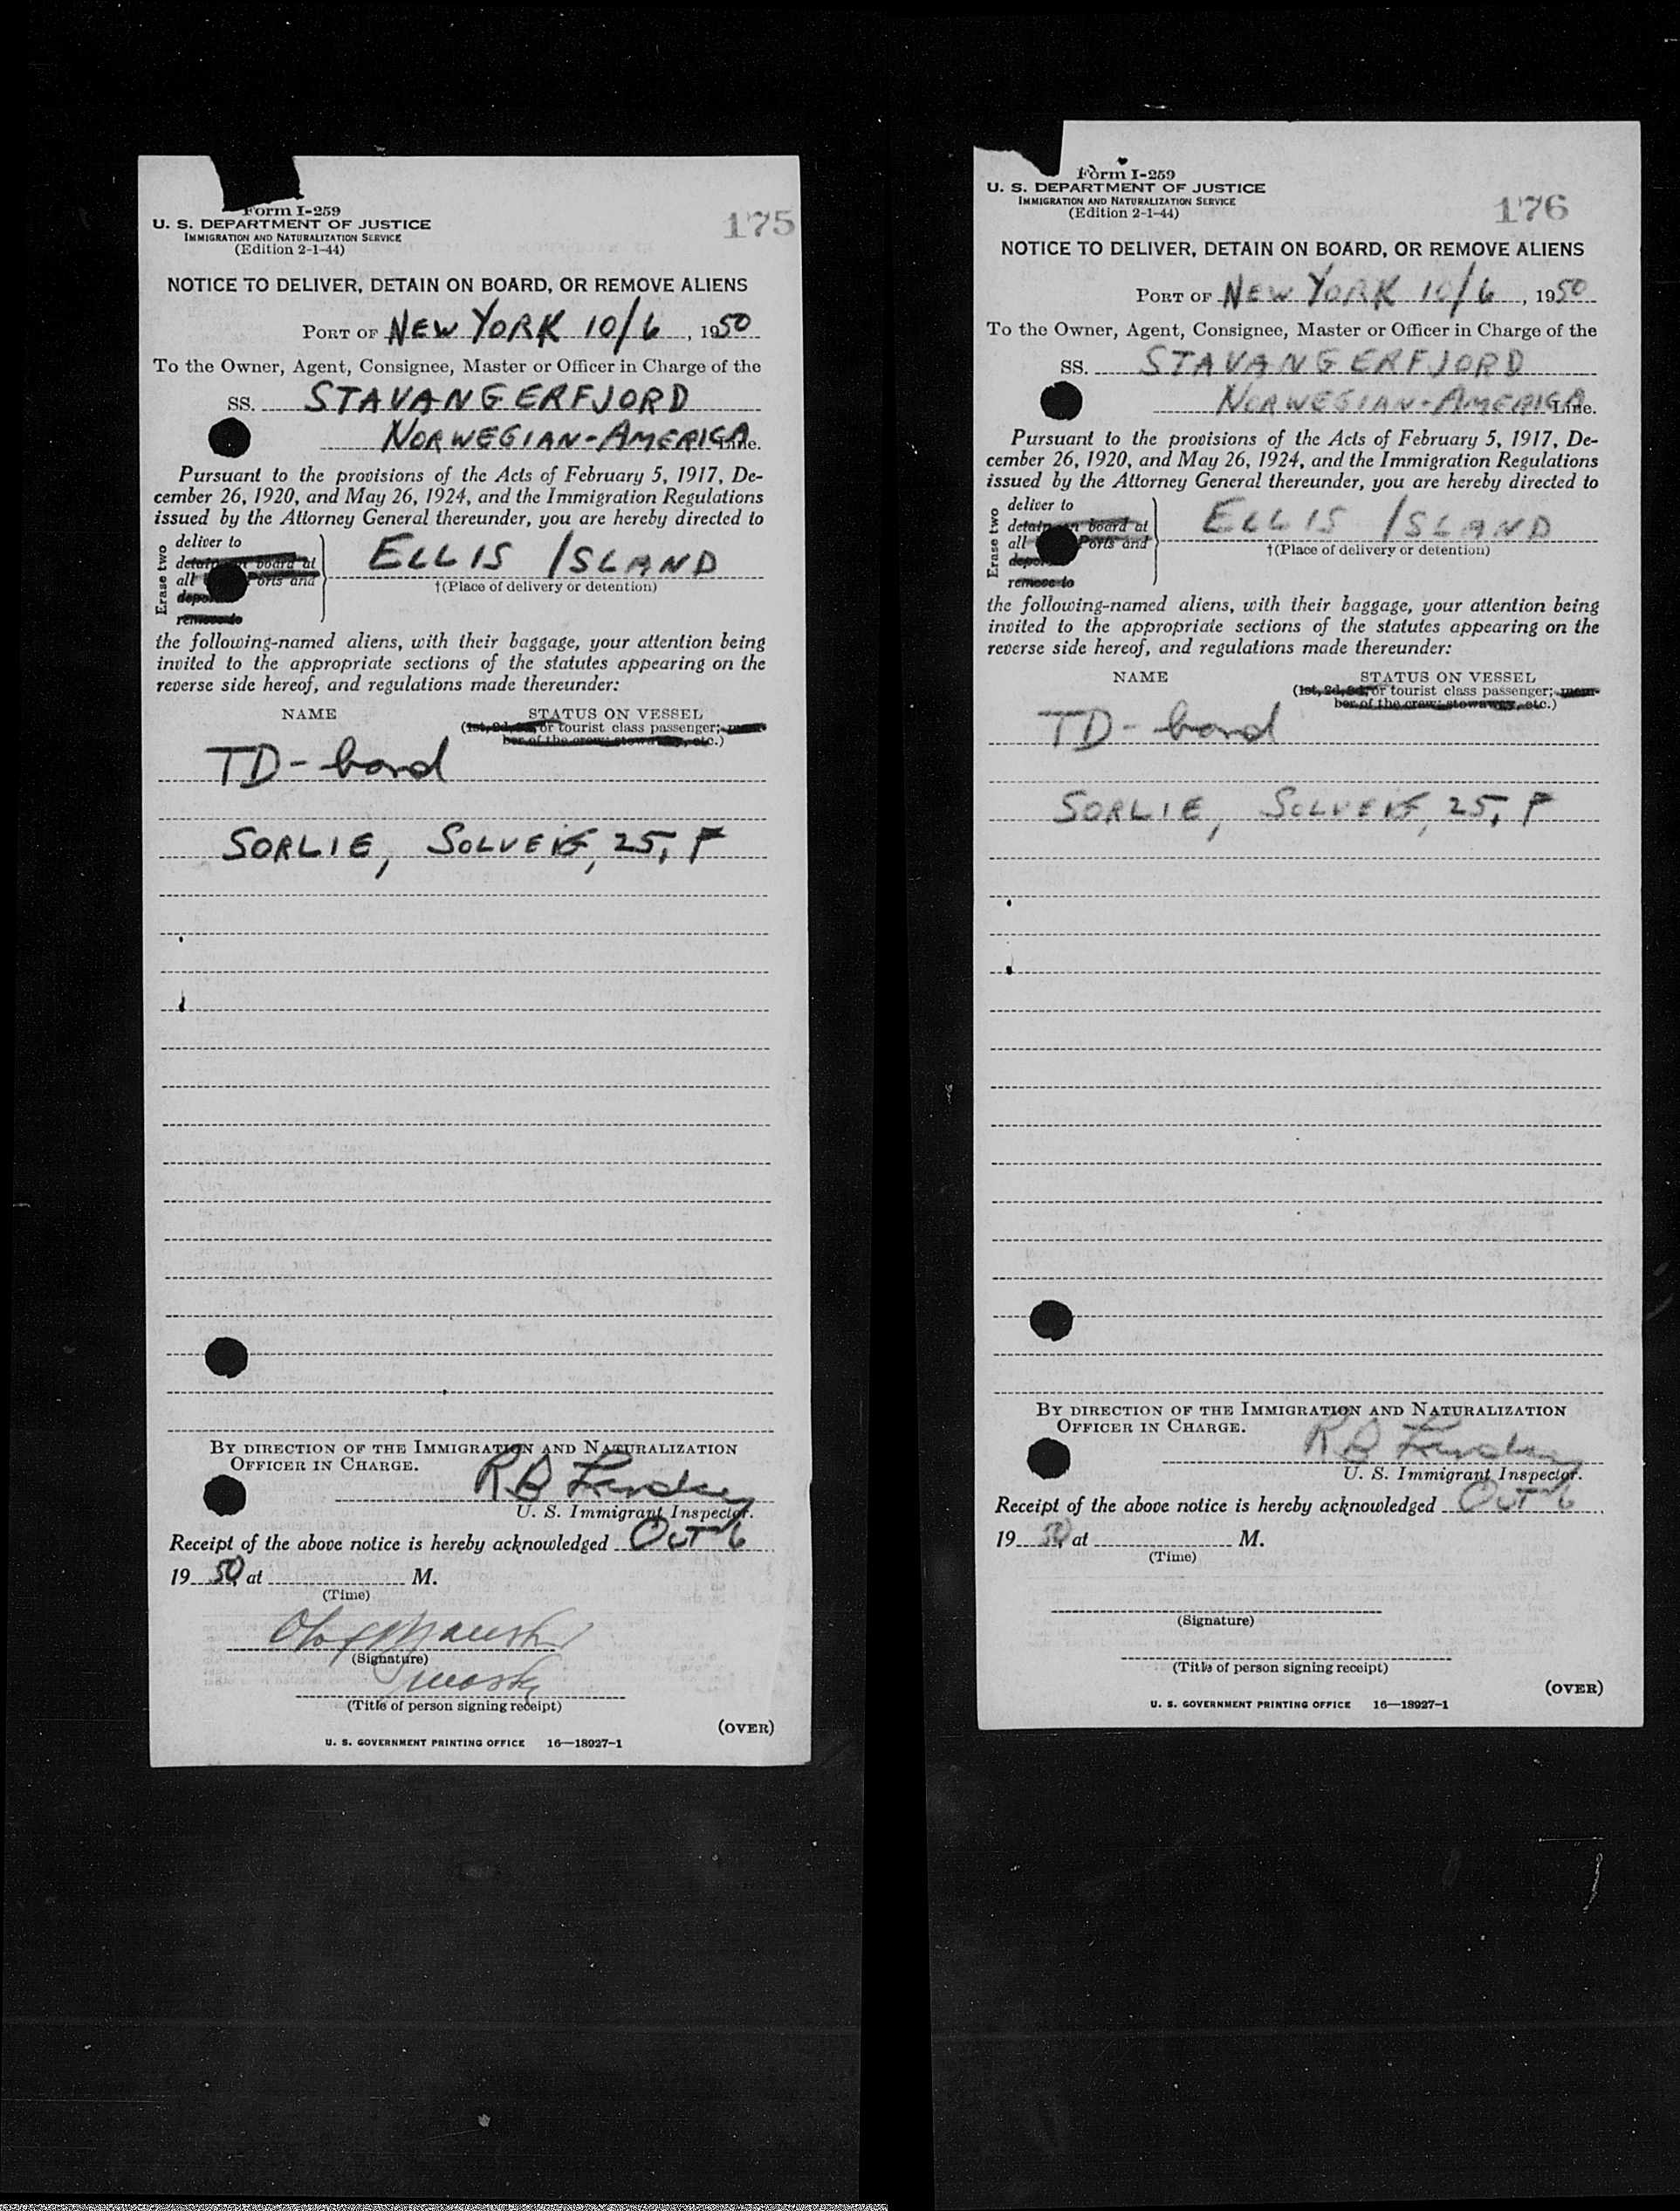 Form I-259
U. S. DEPARTMENT OF JUSTICE
IMMIGRATION AND NATURALIZATION SERVICE
(Edition 2-1-44)
175
NOTICE TO DELIVER, DETAIN ON BOARD, OR REMOVE ALIENS
PORT OF NEW YORK 10/6, 1950
To the Owner, Agent, Consignee, Master or Officer in Charge of the
SS. STAVANGERFJORD
NORWEGIAN-AMERICA Line.
Pursuant to the provisions of the Acts of February 5, 1917, De-
cember 26, 1920, and May 26, 1924, and the Immigration Regulations
issued by the Attorney General thereunder, you are hereby directed to
Erase two
deliver to
board at
all Ports and
remove to
ELLIS ISLAND
†(Place of delivery or detention)
the following-named aliens, with their baggage, your attention being
invited to the appropriate sections of the statutes appearing on the
reverse side hereof, and regulations made thereunder:
NAME STATUS ON VESSEL
(1st, 2d, 3d, or tourist class passenger; mem-
ber of the crew; stowaway, etc.)
TD-bond
SORLIE, SOLVEIG, 25, F
BY DIRECTION OF THE IMMIGRATION AND NATURALIZATION
OFFICER IN CHARGE.
U. S. Immigrant Inspector.
Receipt of the above notice is hereby acknowledged OCT 6
1950, at M.
(Time)
(Signature)
(Title of person signing receipt)
(OVER)
U. S. GOVERNMENT PRINTING OFFICE 16—18927-1
Form I-259
U. S. DEPARTMENT OF JUSTICE
IMMIGRATION AND NATURALIZATION SERVICE
(Edition 2-1-44)
176
NOTICE TO DELIVER, DETAIN ON BOARD, OR REMOVE ALIENS
PORT OF NEW YORK 10/6, 1950
To the Owner, Agent, Consignee, Master or Officer in Charge of the
SS. STAVANGERFJORD
NORWEGIAN-AMERICA Line.
Pursuant to the provisions of the Acts of February 5, 1917, De-
cember 26, 1920, and May 26, 1924, and the Immigration Regulations
issued by the Attorney General thereunder, you are hereby directed to
Erase two
deliver to
detain on board at
all Ports and
remove to
ELLIS ISLAND
†(Place of delivery or detention)
the following-named aliens, with their baggage, your attention being
invited to the appropriate sections of the statutes appearing on the
reverse side hereof, and regulations made thereunder:
NAME STATUS ON VESSEL
(1st, 2d, 3d, or tourist class passenger; mem-
ber of the crew; stowaway, etc.)
TD-bond
SORLIE, SOLVEIG, 25, F
BY DIRECTION OF THE IMMIGRATION AND NATURALIZATION
OFFICER IN CHARGE.
U. S. Immigrant Inspector.
Receipt of the above notice is hereby acknowledged OCT 6
1950, at M.
(Time)
(Signature)
(Title of person signing receipt)
(OVER)
U. S. GOVERNMENT PRINTING OFFICE 16—18927-1